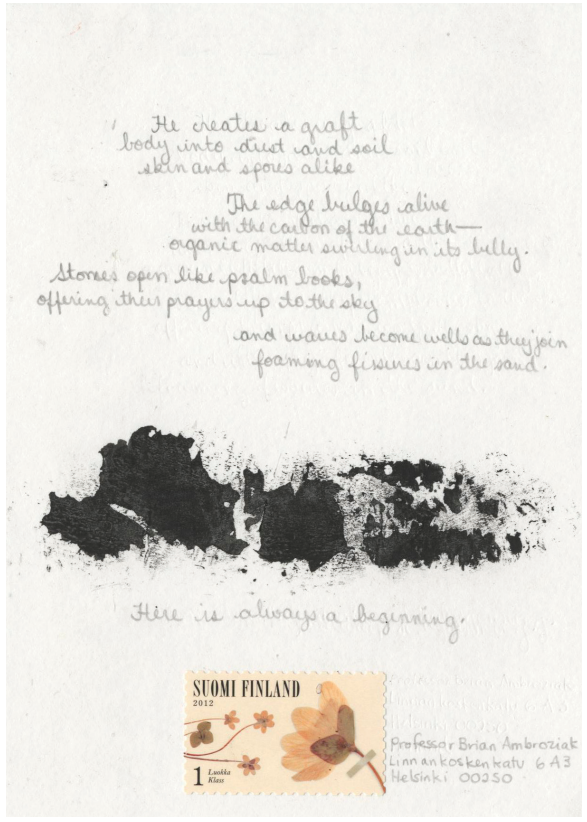 He creates a graft
body into dust and soil
skin and spores alike
The edge bulges alive
with the carbon of the earth—
organic matter swirling in its belly.
Stones open like psalm books,
offering their prayers up to the sky
and waves become wells as they join
foaming fissures in the sand.
Here is always a beginning.
SUOMI FINLAND
2012
1 Luokka
Klass
Professor Brian Ambroziak
Linnankoskenkatu 6 A3
Helsinki 00250